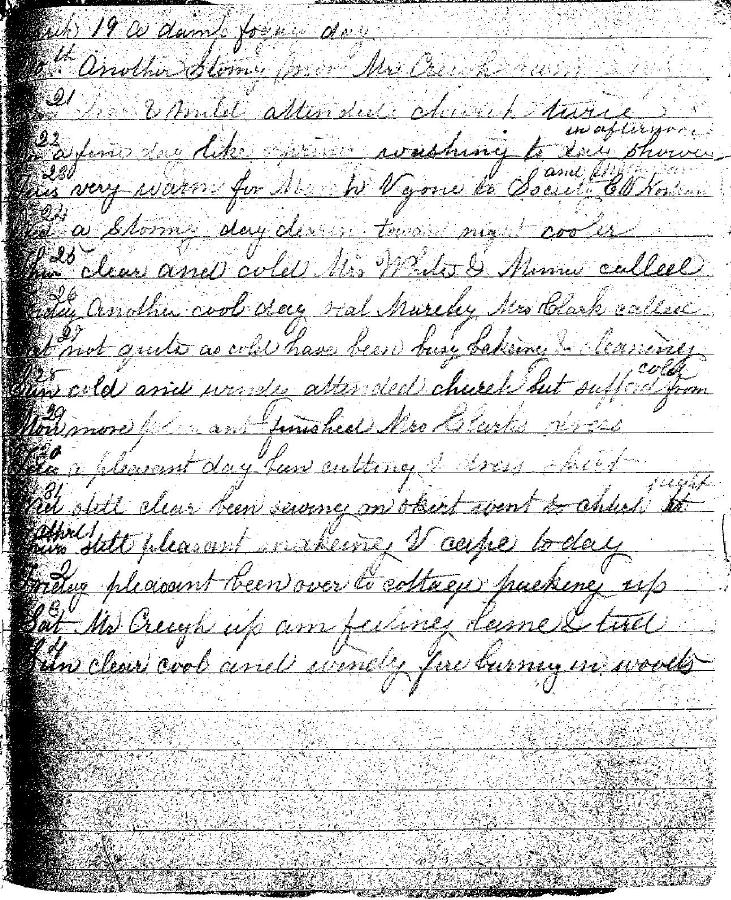 March 19 a damp fogey day
20th Another stomy Mr Creigh
21 & mild attended church twice
22 a fine day like spring washing to day shower in afternoon
23d Tues very warm for March V gone to Society
24 Wed a Stomy day toward night cooler
25 Thur clear and cold Mrs White & Minnie called
26 Friday Another cool day Mrs Clark called
27 Sat not quite as cold have been busy bakeing & cleaning
28 Sun cold and windy attended church but sufferd from cold
29 Mon more pleasant finished Mrs Clarks dress
30 Tues a pleasant day ben cutting a dress skirt
31 Wed still clear been sewing on skirt went to chuch at night
April 1 Thurs still pleasant makeing V cape to day
2 Friday pleasant been over to cottage packing up
3 Sat Mr Creigh up am feeling lame & tired
4 Sun clear cool and windy fire burning in woods